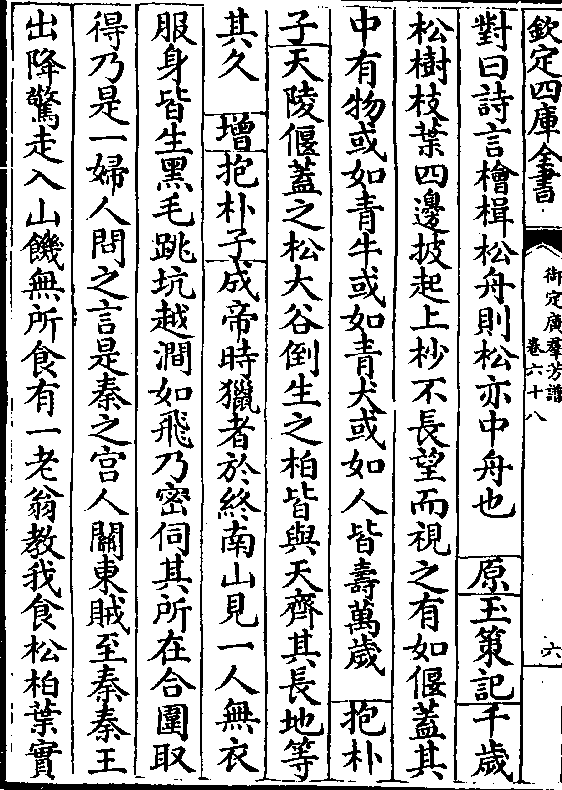 欽定四庫全書
御定廣羣芳譜
卷六十八
六
對曰詩言檜楫松舟則松亦中舟也　原玉策記千歲
松樹枝葉四邊披起上杪不長望而視之有如偃蓋其
中有物或如青牛或如青犬或如人皆壽萬歲　抱朴
子天陵偃蓋之松大谷倒生之柏皆與天齊其長地等
其久　增抱朴子成帝時獵者於終南山見一人無衣
服身皆生黑毛跳坑越澗如飛乃密伺其所在合圍取
得乃是一婦人問之言是秦之宫人關東賊至秦秦王
出降驚走入山饑無所食有一老翁教我食松柏葉實